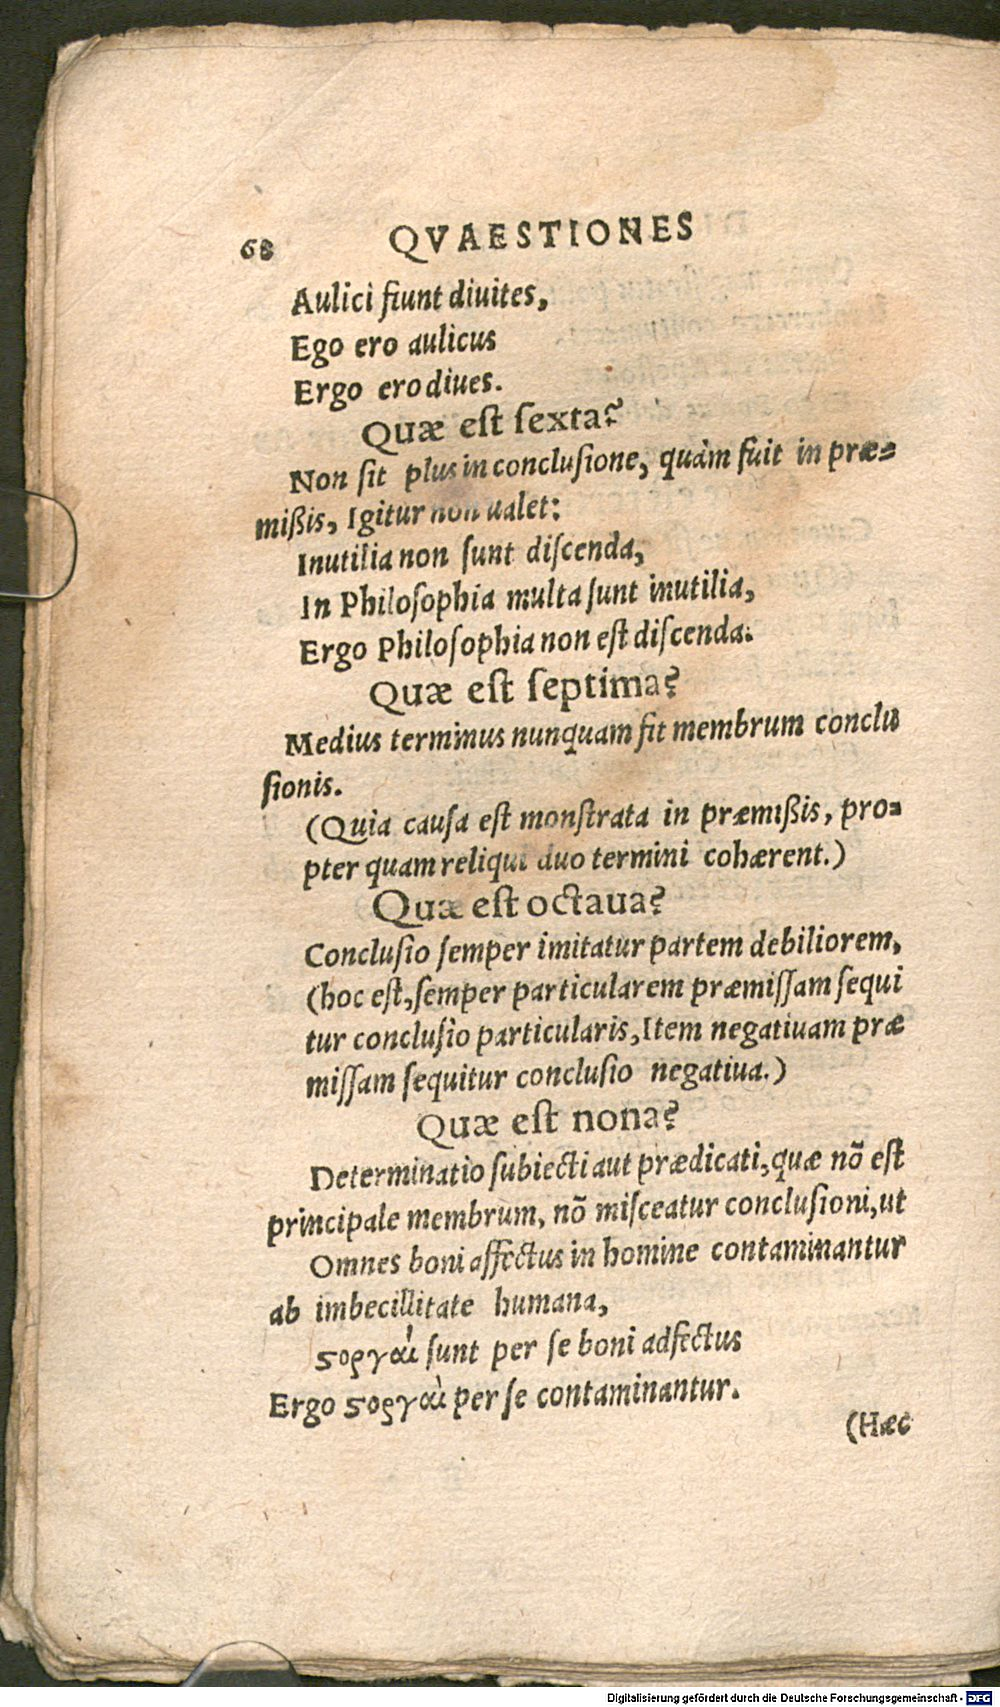 68 QVAESTIONES
Aulici fiunt diuites,
Ego ero aulicus
Ergo ero diues.
Quæ est ſexta?
Non ſit plus in concluſione, quàm fuit in præ=
mißis, Igitur non ualet:
Inutilia non ſunt diſcenda,
In Philoſophia multa ſunt inutilia,
Ergo Philoſophia non eſt diſcenda.
Quæ eſt ſeptima?
Medius terminus nunquam fit membrum conclu
ſionis.
(Quia cauſa eſt monſtrata in præmißis, pro=
pter quam reliqui duo termini cohærent.)
Quæ eſt octaua?
Concluſio ſemper imitatur partem debiliorem,
(hoc eſt, ſemper particularem præmiſſam ſequi
tur concluſio particularis, Item negatiuam præ
miſſam ſequitur concluſio negatiua.)
Quæ eſt nona?
Determinatio ſubiecti aut prædicati, quæ nõ eſt
principale membrum, nõ miſceatur concluſioni, ut
Omnes boni affectus in homine contaminantur
ab imbecillitate humana,
ϛοργαὶ ſunt per ſe boni adfectus
Ergo ϛοργαὶ per ſe contaminantur.
(Hæc
Digitalisierung gefördert durch die Deutsche Forschungsgemeinschaft - DFG